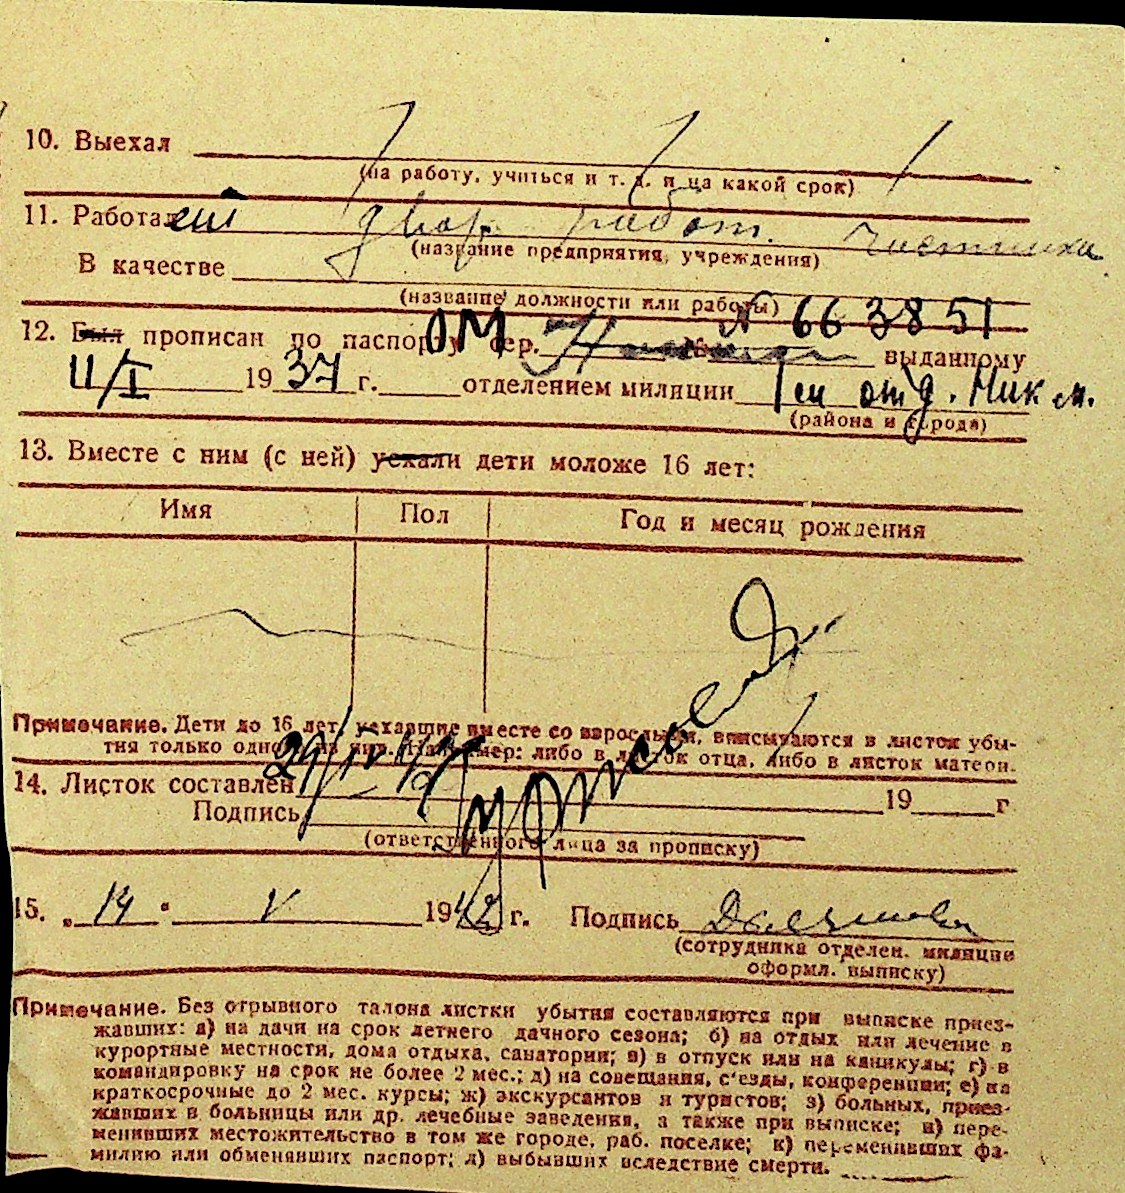 10. Выехал
(на работу, учиться и т. д. и на какой срок)
11. Работал
(название предприятия, учреждения)
В качестве
(название должности или работы) № 663851
12. Был прописан по паспорту ОМ сер. выданному
11/I 1937 г. отделением милиции отд. Ник
(района и города)
13. Вместе с ним (с ней) уехали дети моложе 16 лет:
Имя Пол Год и месяц рождения
Примечание. Дети до 16 лет, уехавшие вместе со взрослыми, вписываются в листок убы-
тия только одного из них. Например: либо в листок отца, либо в листок матери.
14. Листок составлен 29/IV 42 19 г
Подпись
(ответственного лица за прописку)
15. „14" V 1942 г. Подпись
(сотрудника отделен. милиции
оформл. выписку)
Примечание. Без отрывного талона листки убытия составляются при выписке приез-
жавших: а) на дачи на срок летнего дачного сезона; б) на отдых или лечение в
курортные местности, дома отдыха, санатории; в) в отпуск или на каникулы; г) в
командировку на срок не более 2 мес.; д) на совещания, с'езды, конференции; е) на
краткосрочные до 2 мес. курсы; ж) экскурсантов и туристов; з) больных, приез-
жавших в больницы или др. лечебные заведения, а также при выписке; и) пере-
менивших местожительство в том же городе, раб. поселке; к) переменивших фа-
милию или обменявших паспорт; л) выбывших вследствие смерти.